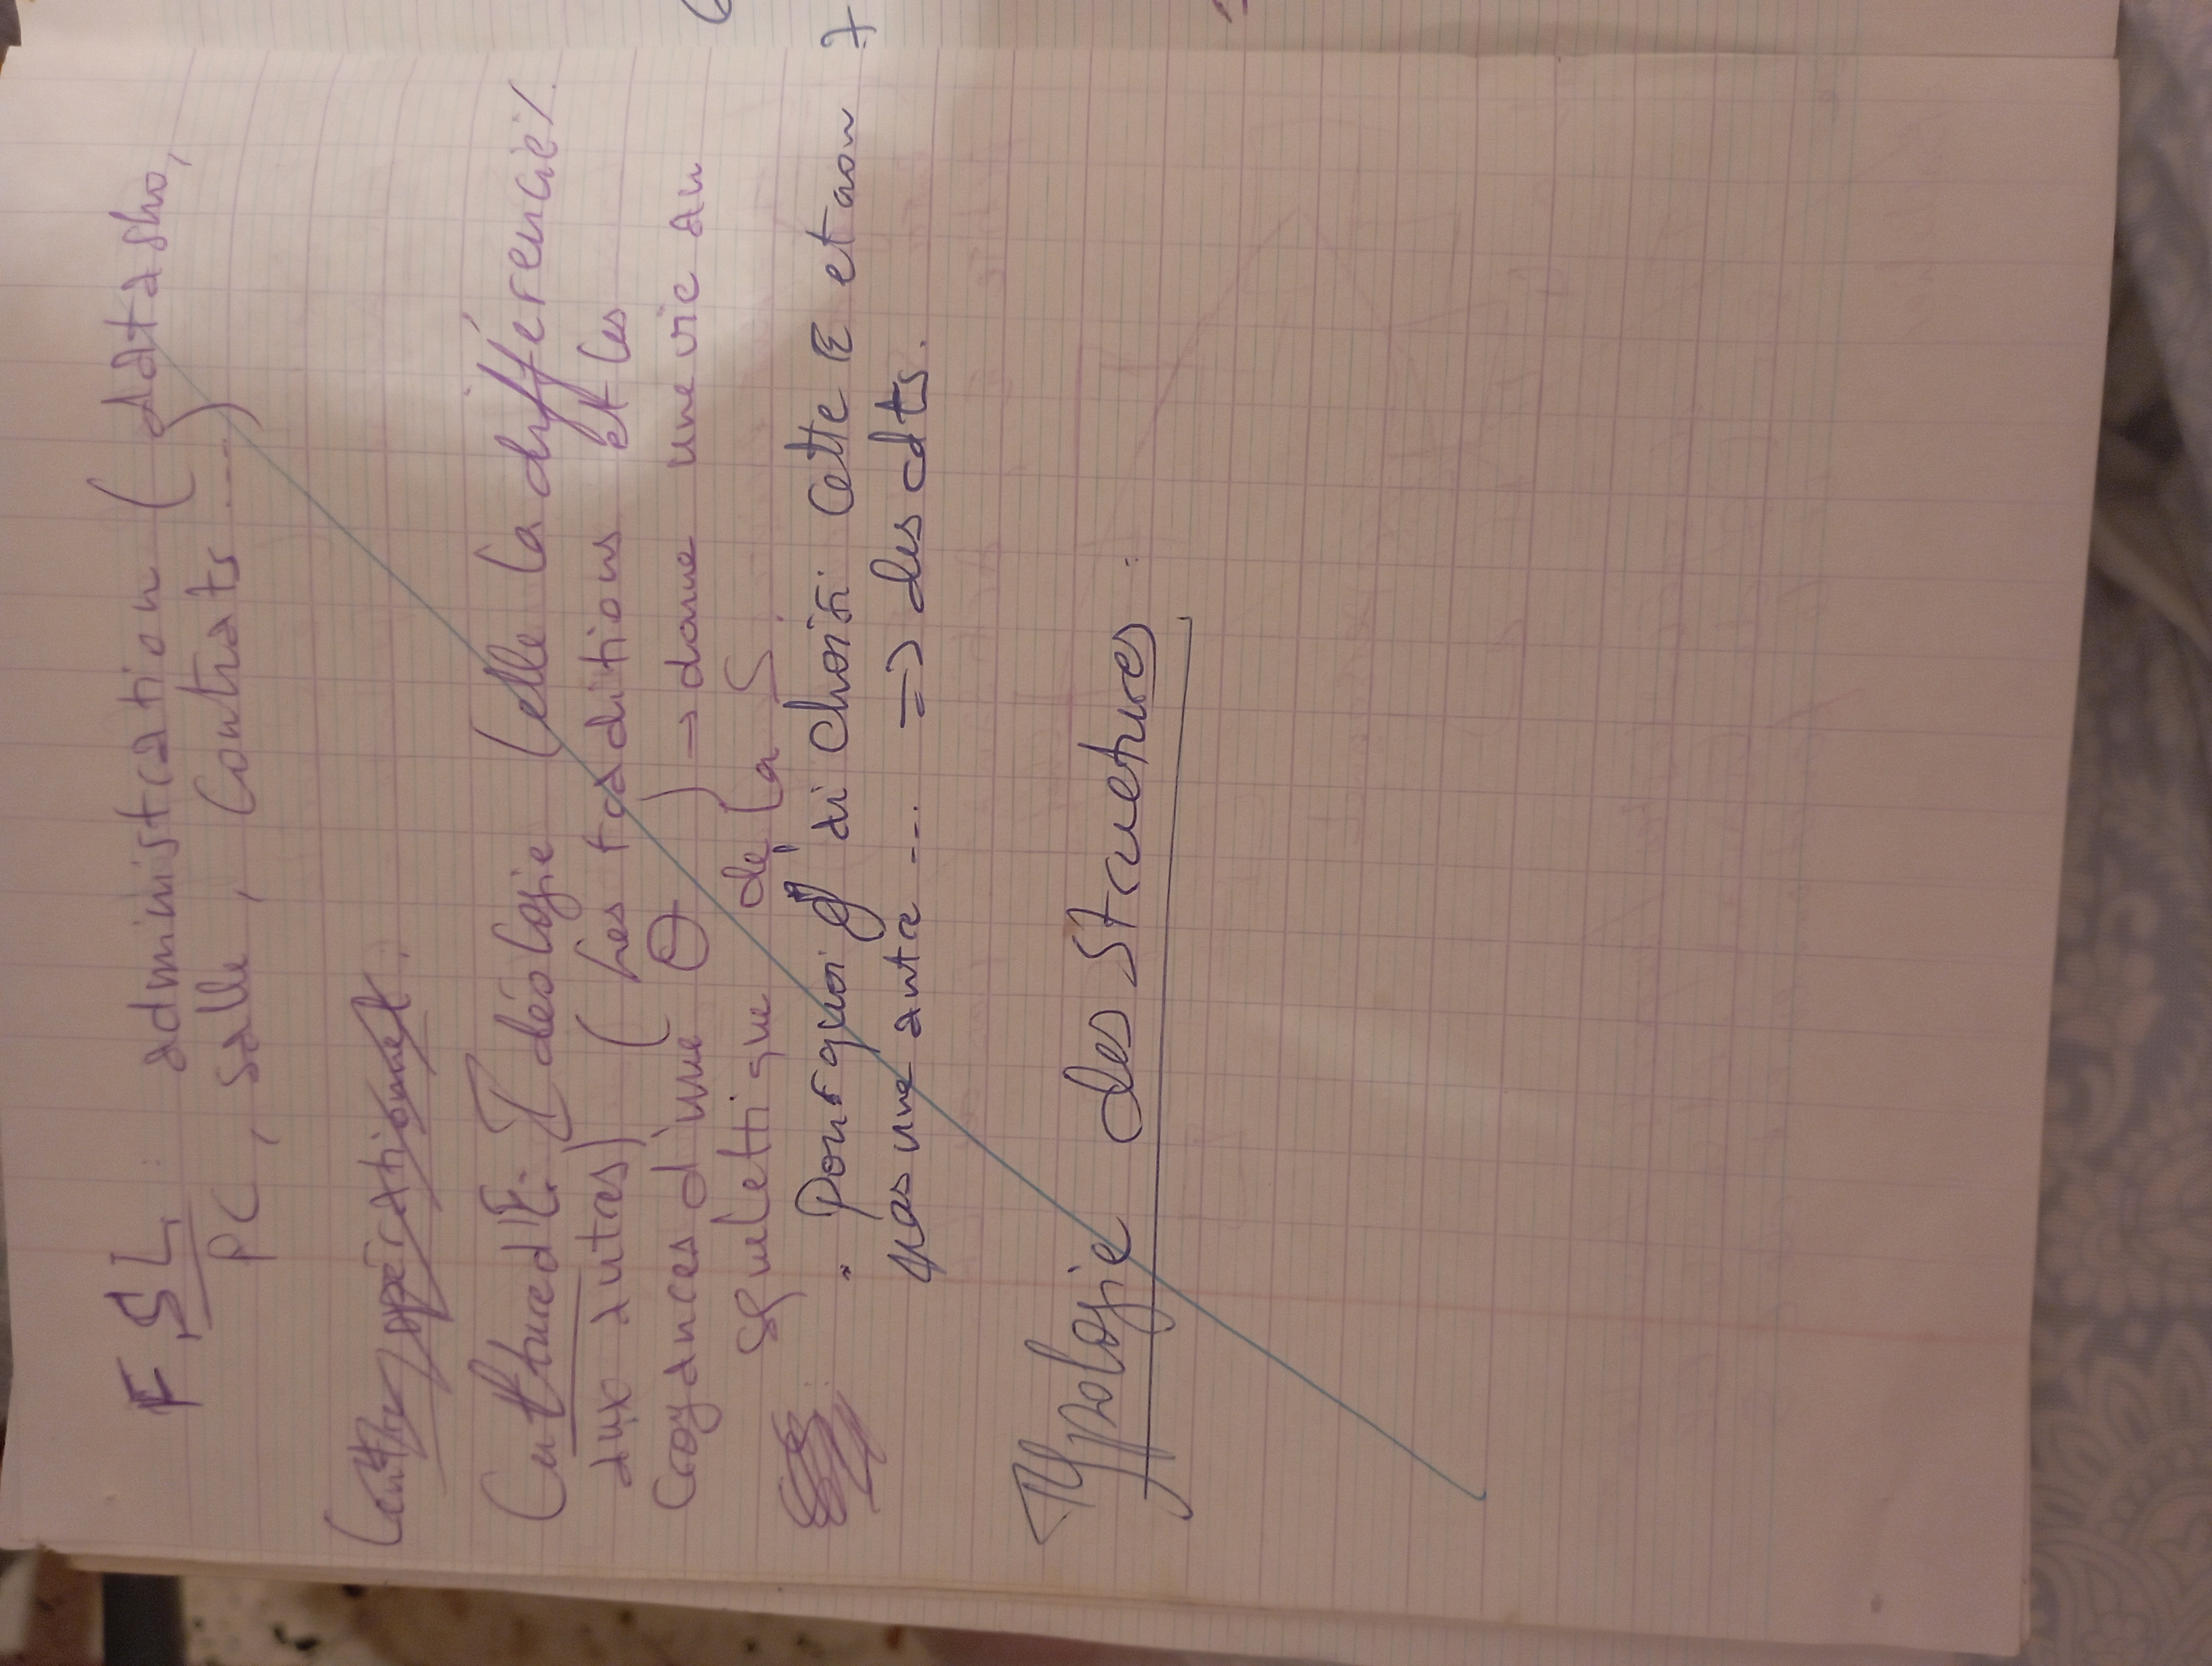 FSL : administration (datasho,
PC, salle, Contrats ....)
Culture d'E : Idéologie (elle la différencie /
aux autres) (les traditions et les
Croyances d'une Θ) → donne une vie au
squelettique de la S.
" pourquoi g di choisi Cette E etaon
pas une autre --- => des cdts.
Typologie des Structures :